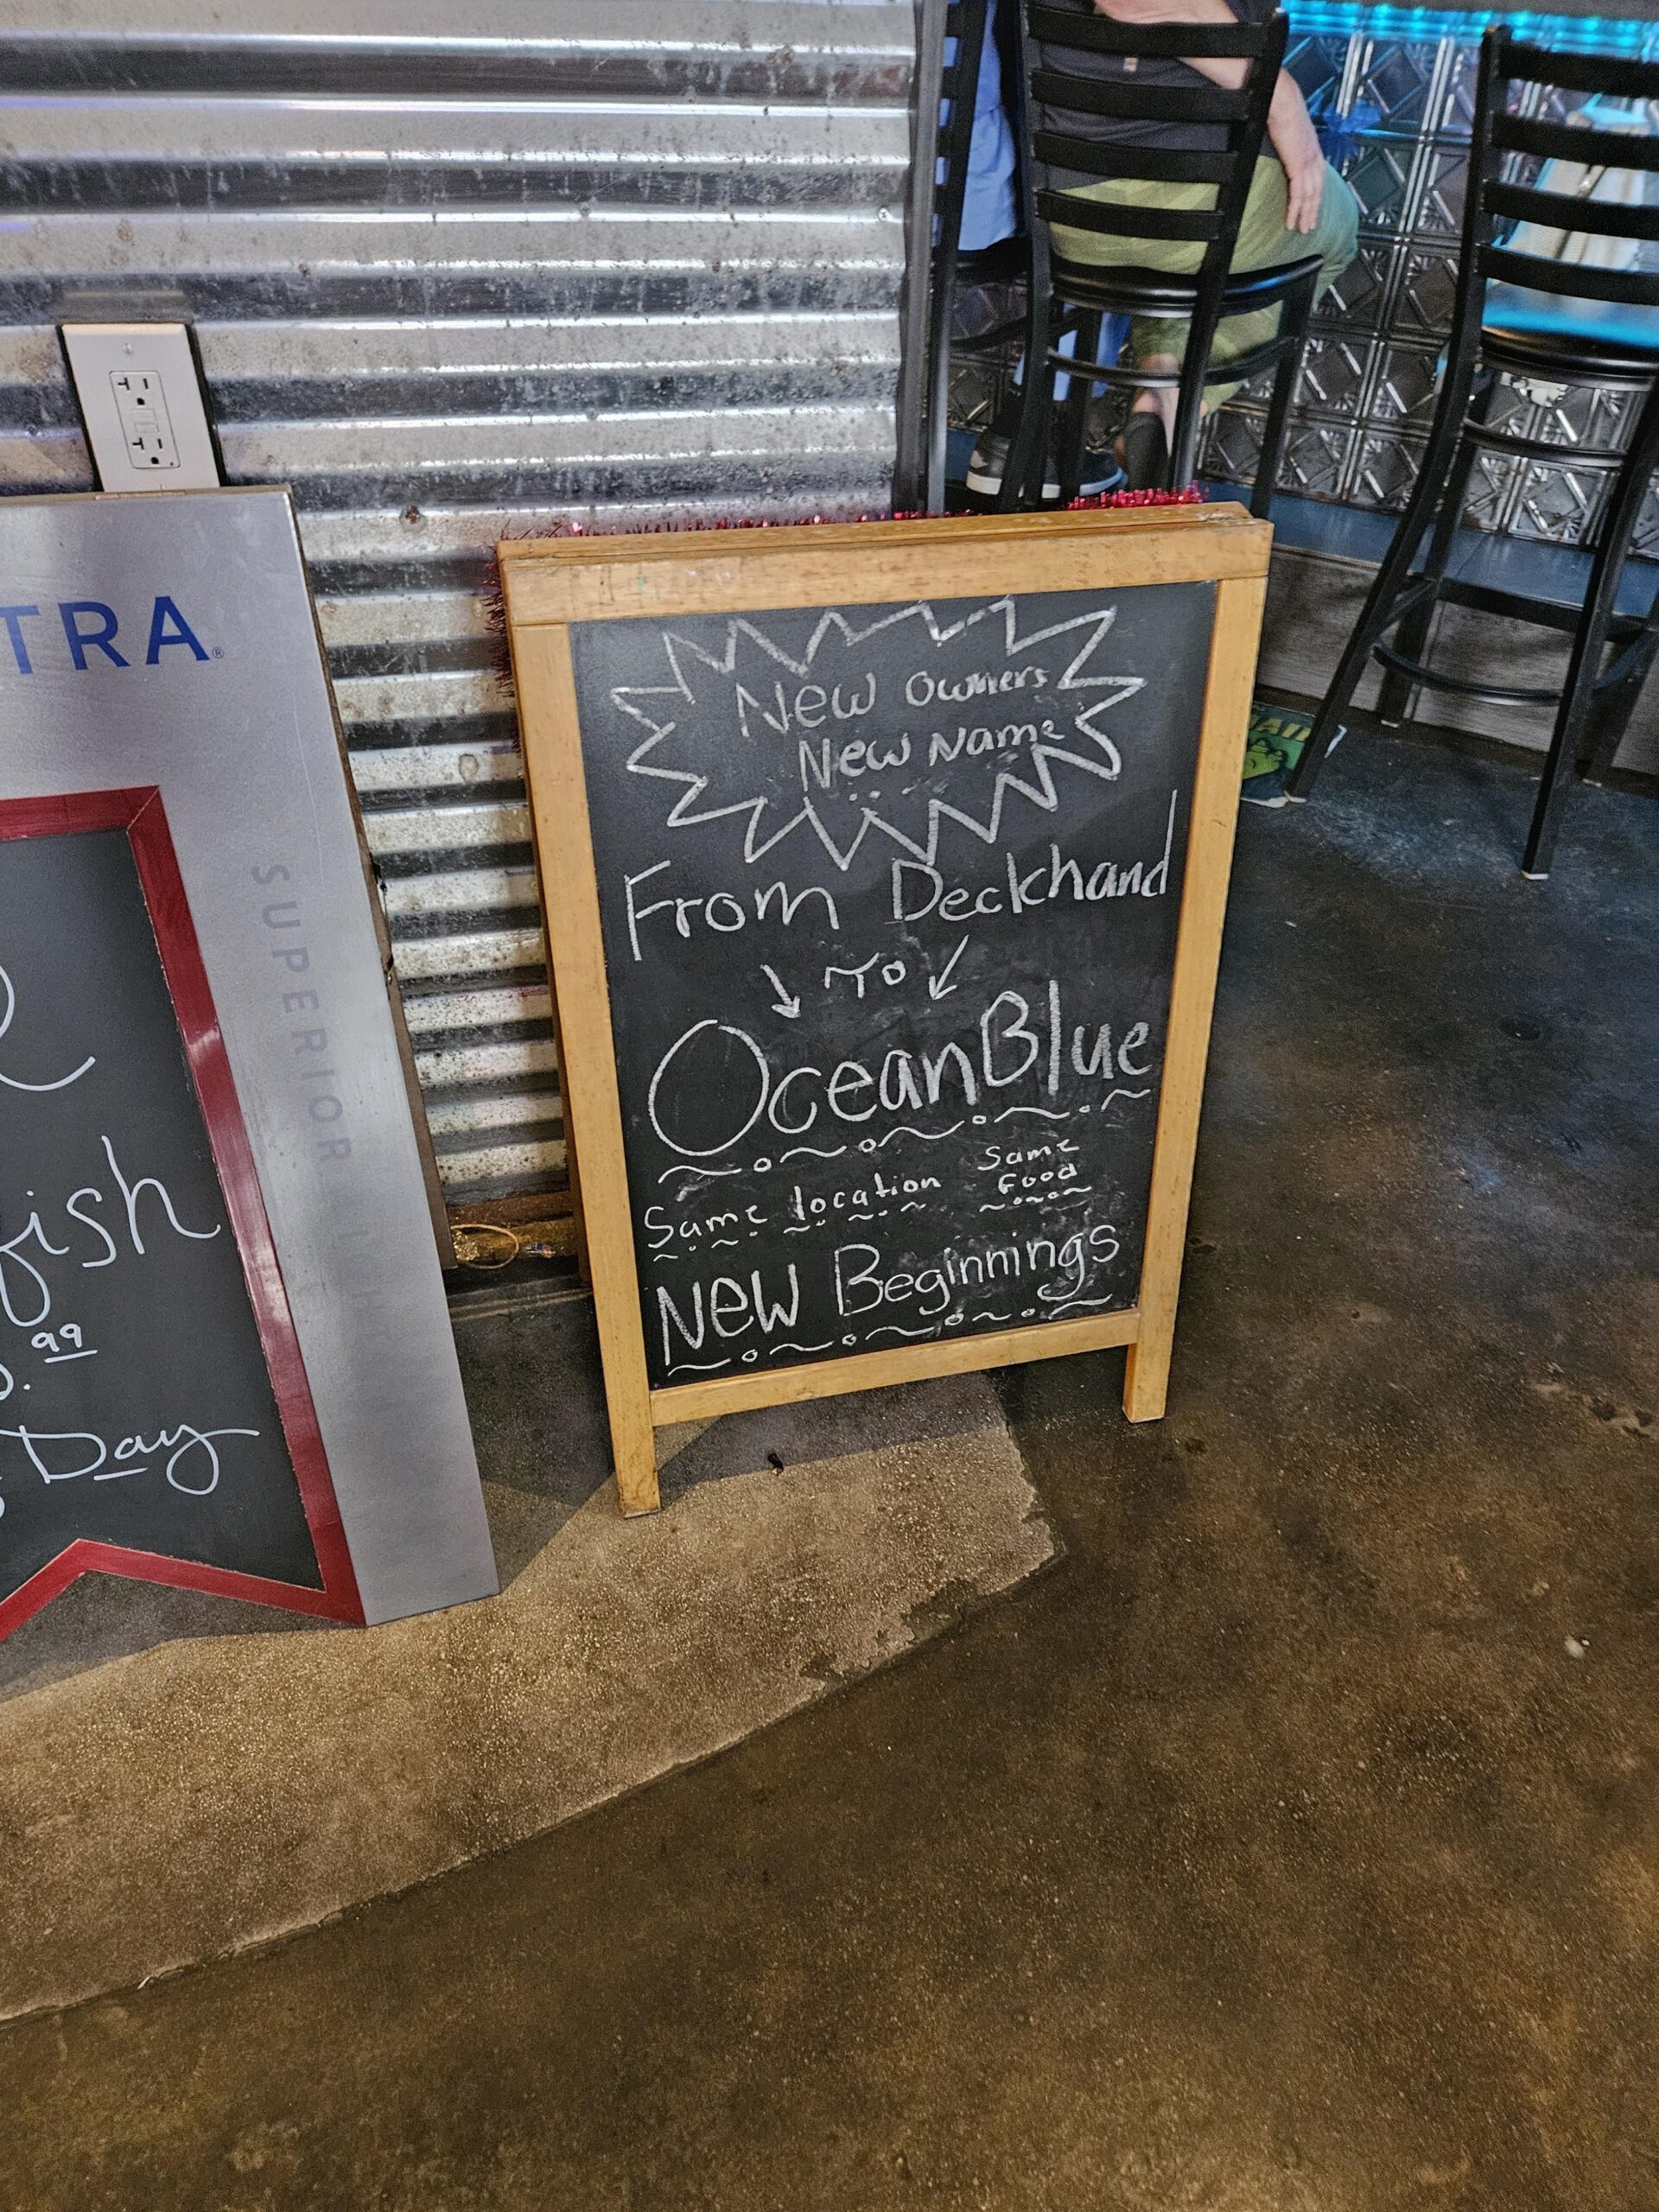 TRA®
SUPERIOR
fish
.99
Day
New Owners
New Name
From Deckhand
To
OceanBlue
Same location Same
Food
New Beginnings